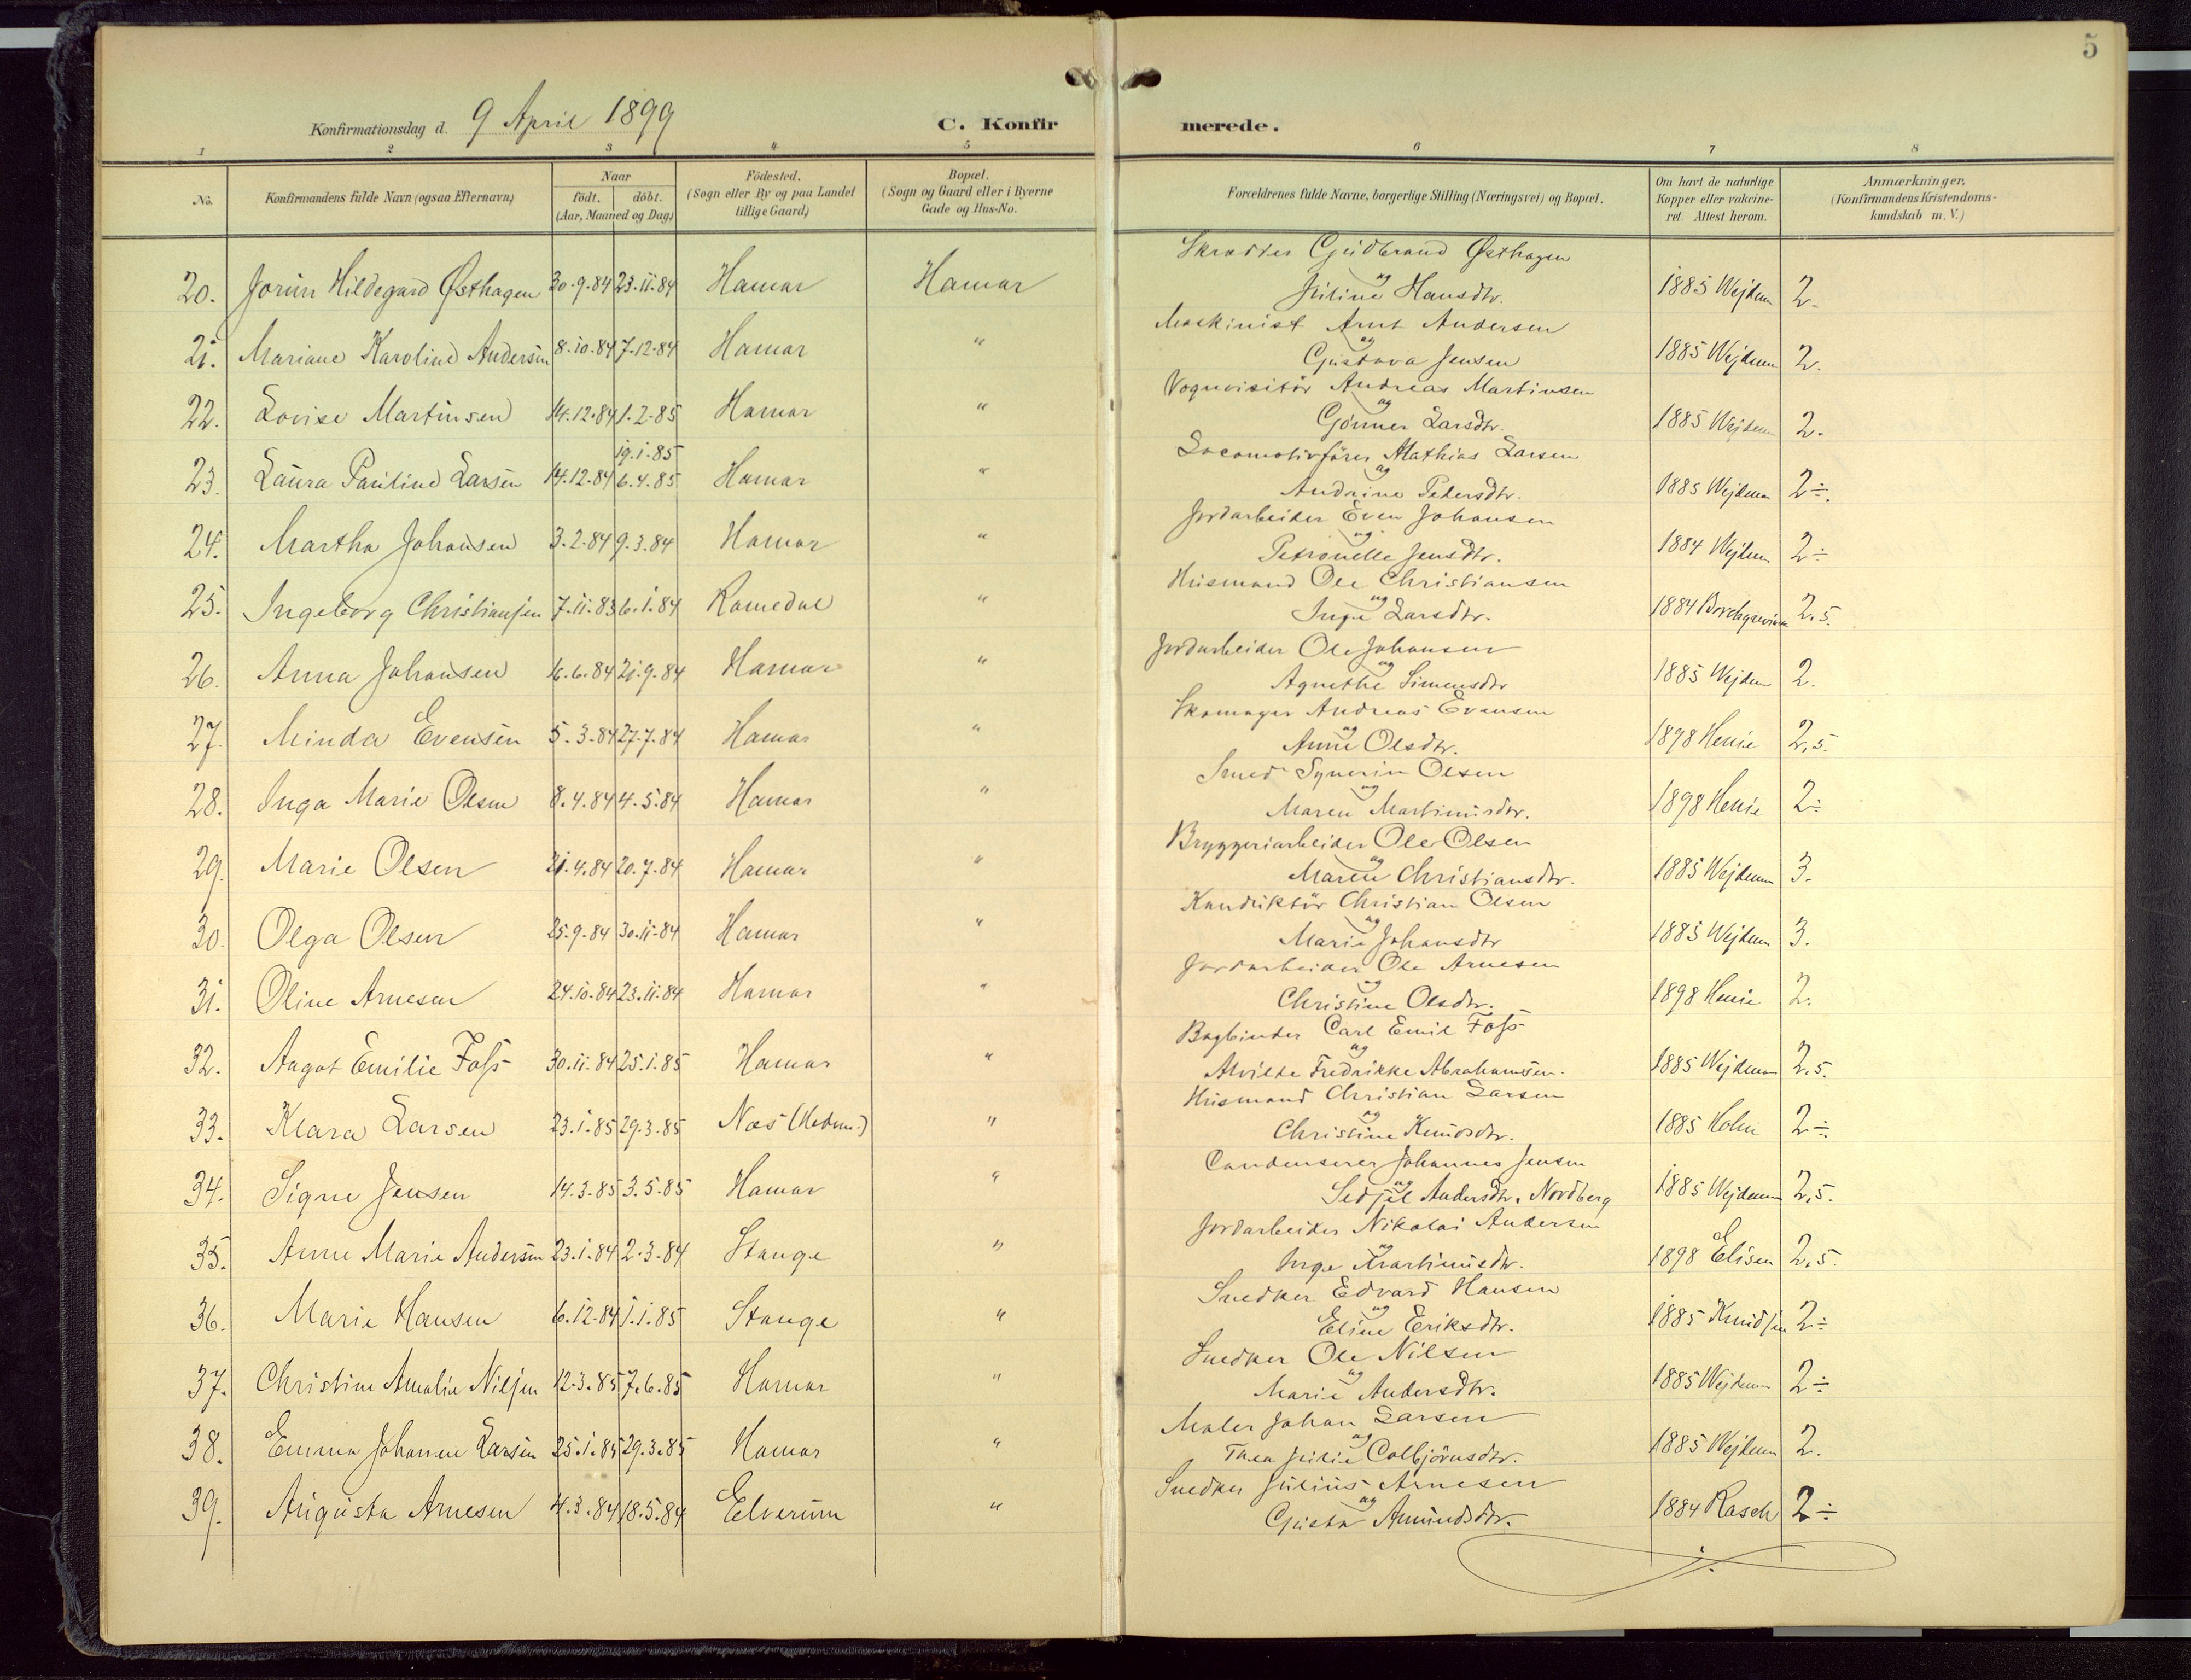 5
Konfirmationsdag d. 9 April 1899
C. Konfirmerede.
1 2 3 4 5 6 7 8
No. | Konfirmandens fulde Navn (ogsaa Efternavn) | Naar födt. döbt. (Aar, Maaned og Dag) | Födested. (Sogn eller By og paa Landet tillige Gaard) | Bopæl. (Sogn og Gaard eller i Byerne Gade og Hus-No. | Forældrenes fulde Navne, borgerlige Stilling (Næringsvei) og Bopæl. | Om havt de naturlige Kopper eller vakcineret Attest herom. | Anmærkninger. (Konfirmandens Kristendomskundskab m. V.)
20. Jorun Hildegard Østhagen 30.9.84 23.11.84 Hamar Hamar Skrædder Gudbrand Østhagen og Juline Hansdtr. 1885 Wejdem 2.
21. Mariane Karoline Andersen 8.10.84 7.12.84 Hamar " Maskinist Arnt Andersen og Gustava Jensen 1885 Wejdem 2.
22. Lovise Martinsen 14.12.84 1.2.85 Hamar " Vognvisitör Andreas Martinsen og Gönner Larsdtr. 1885 Wejdem 2.
23. Laura Pauline Larsen 14.12.84 19.1.85 6.4.85 Hamar " Locomotivförer Mathias Larsen og Andrine Pedersdtr. 1885 Wejdem 2÷.
24. Martha Johansen 3.2.84 9.3.84 Hamar " Jordarbeider Even Johansen og Petronelle Jensdtr. 1884 Wejdem 2÷
25. Ingeborg Christiansen 7.11.83 6.1.84 Romedal " Husmand Ole Christiansen og Inge Larsdtr. 1884 Borchgrevink 2,5.
26. Anna Johansen 16.6.84 21.9.84 Hamar " Jordarbeider Ole Johansen og Agnethe Simensdtr 1885 Wejdem 2.
27. Minda Evensen 5.3.84 27.7.84 Hamar " Skomager Andreas Evensen og Anne Olsdtr. 1898 Henie 2,5.
28. Inga Marie Olsen 8.4.84 4.5.84 Hamar " Smed Synerin Olsen og Maren Martinusdtr. 1898 Henie 2÷
29. Marie Olsen 21.4.84 20.7.84 Hamar " Bryggeriarbeider Ole Olsen og Maren Christiansdtr. 1885 Wejdem 3.
30. Olga Olsen 25.9.84 30.11.84 Hamar " Konduktör Christian Olsen og Marie Johansdtr 1885 Wejdem 3.
31. Oline Arnesen 24.10.84 23.11.84 Hamar " Jordarbeider Ole Arnesen og Christine Olsdtr. 1898 Henie 2.
32. Aagot Emilie Foss 30.11.84 25.1.85 Hamar " Bogbinder Carl Emil Foss og Alvilde Fredrikke Abrahamsen. 1885 Wejdem 2,5.
33. Klara Larsen 23.1.85 29.3.85 Næs (Hedm.) " Husmand Christian Larsen og Christine Knudsdtr. 1885 Holm 2÷.
34. Signe Jensen 14.3.85 3.5.85 Hamar " Condenserer Johannes Jensen og Sedsel Andersdtr. Nordberg 1885 Wejdem 2,5.
35. Anne Marie Andersen 23.1.84 2.3.84 Stange " Jordarbeider Nikolai Andersen og Inge Martinusdtr. 1898 Elisen 2,5.
36. Marie Hansen 6.12.84 1.1.85 Stange " Snedker Edvard Hansen og Eline Eriksdtr. 1885 Knudsen 2÷
37. Christine Amalie Nilsen 12.3.85 7.6.85 Hamar " Snedker Ole Nilsen og Marie Andersdtr. 1885 Wejdem 2÷
38. Emma Johanne Larsen 25.1.85 29.3.85 Hamar " Maler Johan Larsen og Thea Julie Colbjörnsdtr. 1885 Wejdem 2.
39. Augusta Arnesen 4.3.84 18.5.84 Elverum " Snedker Julius Arnesen og Gusta Amundsdtr. 1884 Rasch 2÷